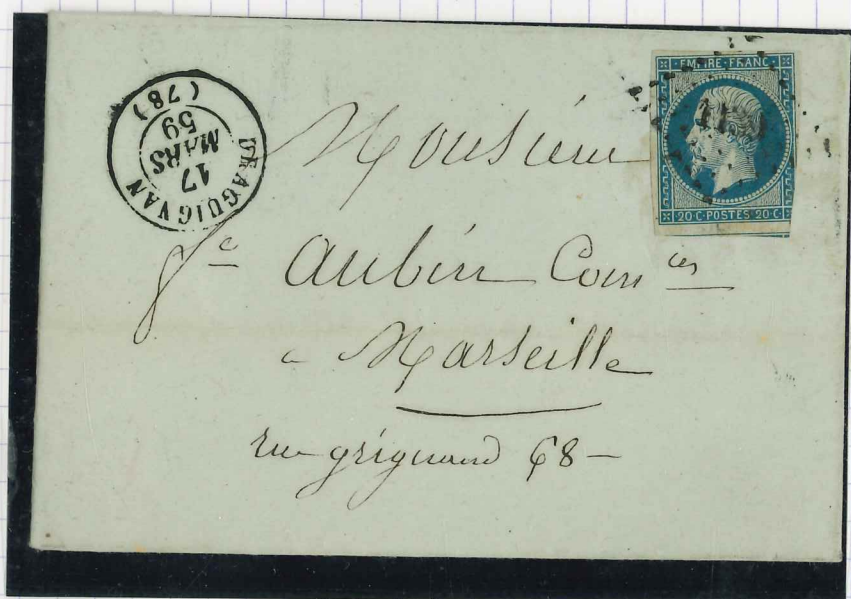 DRAGUIGNAN
17
MARS
59
(78)
EMPIRE · FRANC
20 C · POSTES · 20 C
Monsieur
Aubin Com
à Marseille
rue grignand 68 –